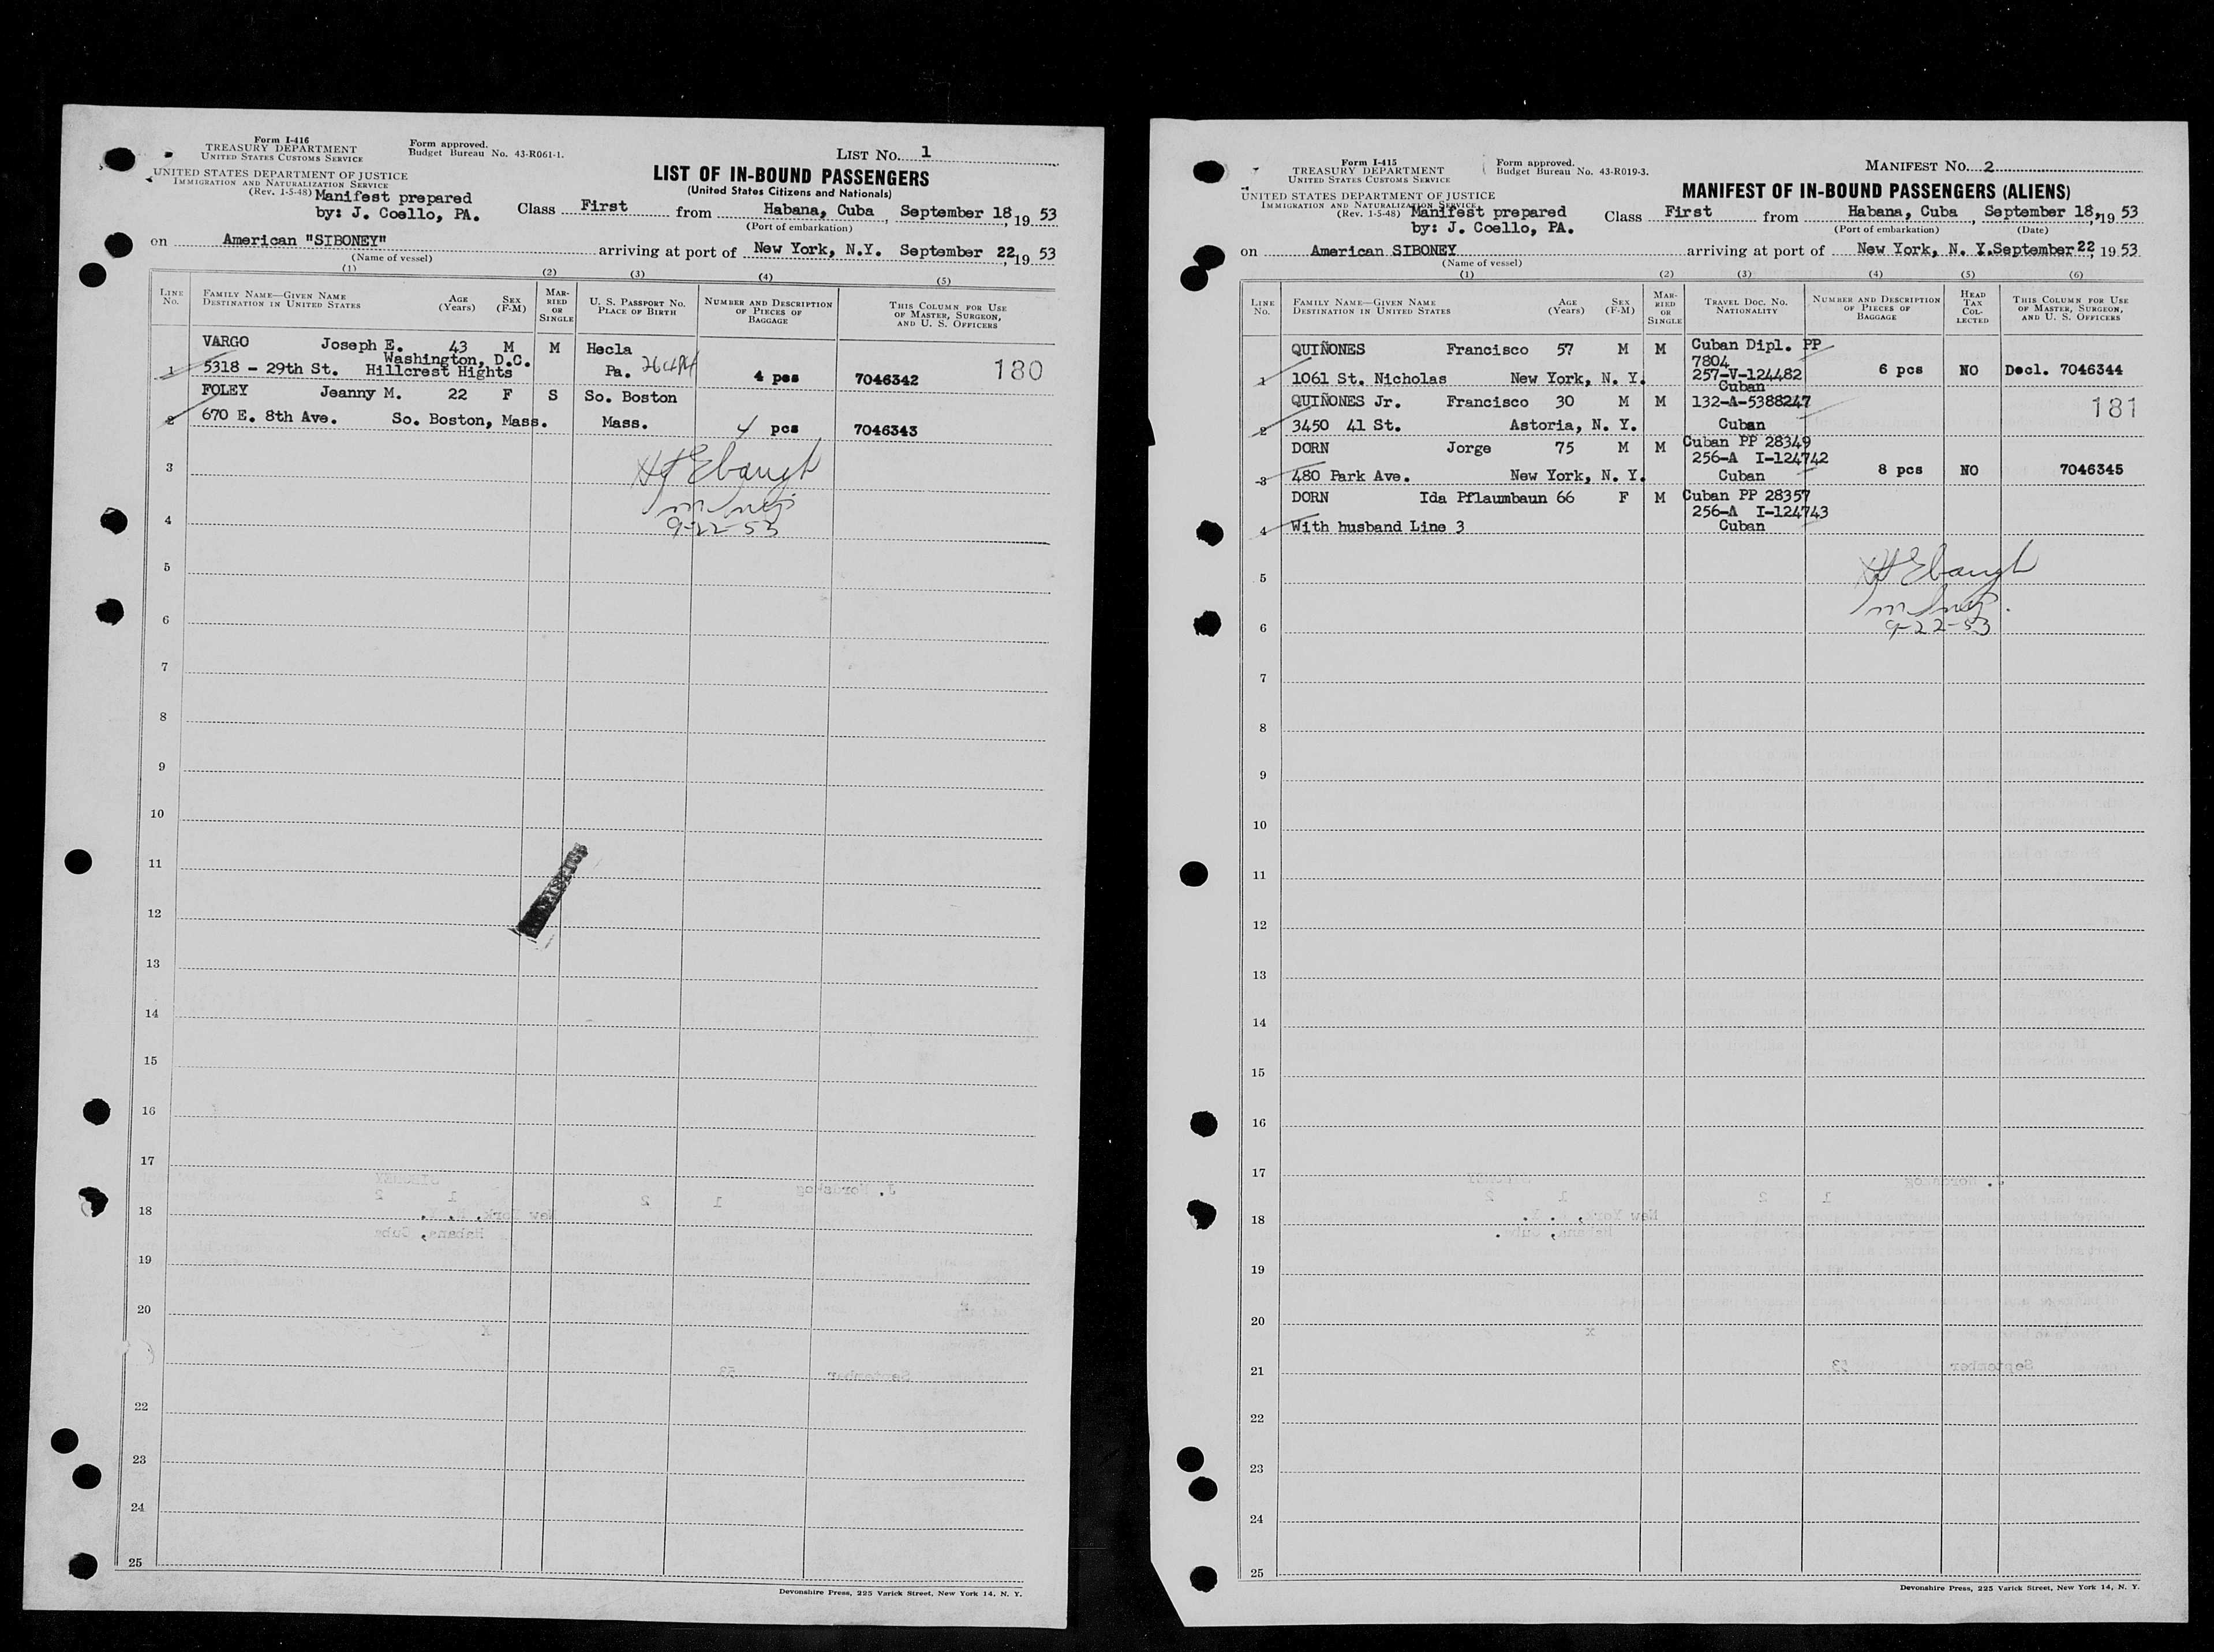 Form I-416
TREASURY DEPARTMENT
UNITED STATES CUSTOMS SERVICE
Form approved.
Budget Bureau No. 43-R061-1.
LIST NO. 1
UNITED STATES DEPARTMENT OF JUSTICE
IMMIGRATION AND NATURALIZATION SERVICE
(Rev. 1-5-48)
Manifest prepared
by: J. Coello, PA.
LIST OF IN-BOUND PASSENGERS
(United States Citizens and Nationals)
Class First from Habana, Cuba, September 18, 19 53
(Port of embarkation)
on American "SIBONEY" arriving at port of New York, N.Y. September 22, 19 53
(Name of vessel)
(1) (2) (3) (4) (5)
LINE No. FAMILY NAME—GIVEN NAME DESTINATION IN UNITED STATES AGE (Years) SEX (F-M) MARRIED OR SINGLE U. S. PASSPORT NO. PLACE OF BIRTH NUMBER AND DESCRIPTION OF PIECES OF BAGGAGE THIS COLUMN FOR USE OF MASTER, SURGEON, AND U. S. OFFICERS
VARGO Joseph E. 43 M M Hecla
Washington, D.C.
1 5318 - 29th St. Hillcrest Hights Pa. 4 pcs 7046342 180
FOLEY Jeanny M. 22 F S So. Boston
2 670 E. 8th Ave. So. Boston, Mass. Mass. 4 pcs 7046343
3
H Ebaugh
4
9-22-53
5
6
7
8
9
10
11
12
13
14
15
16
17
18
19
20
22
23
24
25
Devonshire Press, 225 Varick Street, New York 14, N. Y.
Form I-415
TREASURY DEPARTMENT
UNITED STATES CUSTOMS SERVICE
Form approved.
Budget Bureau No. 43-R019-3.
MANIFEST NO. 2
UNITED STATES DEPARTMENT OF JUSTICE
IMMIGRATION AND NATURALIZATION SERVICE
(Rev. 1-5-48)
Manifest prepared
by: J. Coello, PA.
MANIFEST OF IN-BOUND PASSENGERS (ALIENS)
Class First from Habana, Cuba, September 18, 19 53
(Port of embarkation) (Date)
on American SIBONEY arriving at port of New York, N. Y. September 22, 19 53
(Name of vessel)
(1) (2) (3) (4) (5) (6)
LINE No. FAMILY NAME—GIVEN NAME DESTINATION IN UNITED STATES AGE (Years) SEX (F-M) MARRIED OR SINGLE TRAVEL DOC. NO. NATIONALITY NUMBER AND DESCRIPTION OF PIECES OF BAGGAGE HEAD TAX COLLECTED THIS COLUMN FOR USE OF MASTER, SURGEON, AND U. S. OFFICERS
QUIÑONES Francisco 57 M M Cuban Dipl. PP
7804
1 1061 St. Nicholas New York, N. Y. 257-V-124482 6 pcs NO Decl. 7046344
Cuban
QUIÑONES Jr. Francisco 30 M M 132-A-5388247 181
2 3450 41 St. Astoria, N. Y. Cuban
DORN Jorge 75 M M Cuban PP 28349
256-A I-124742
3 480 Park Ave. New York, N. Y. Cuban 8 pcs NO 7046345
DORN Ida Pflaumbaun 66 F M Cuban PP 28357
256-A I-124743
4 With husband Line 3 Cuban
5
H Ebaugh
6
9-22-53
7
8
9
10
11
12
13
14
15
16
17
18
19
20
21
22
23
24
25
Devonshire Press, 225 Varick Street, New York 14, N. Y.